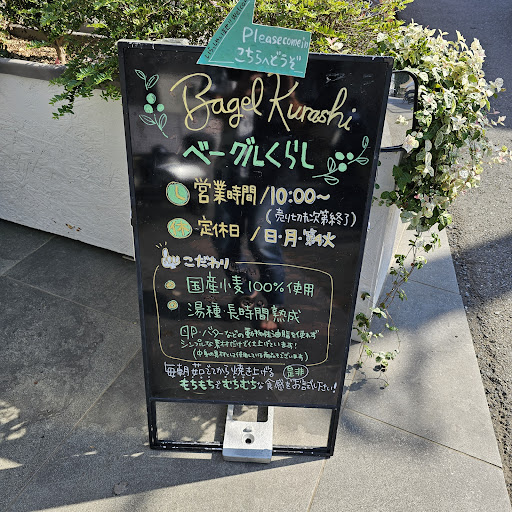 Please come in
こちらへどうぞ
Bagel Kurashi
ベーグルくらし
営業時間/10:00~
(売り切れ次第終了)
定休日 /日・月・火
こだわり
国産小麦100%使用
湯種・長時間熟成
卵・バターなどの動物性油脂を使わず
シンプルな素材だけで仕上げています!
(中身の具材には使用している商品もございます)
毎朝茹でてから焼き上げる 是非
もちもちでむちむちな食感をお試し下さい!